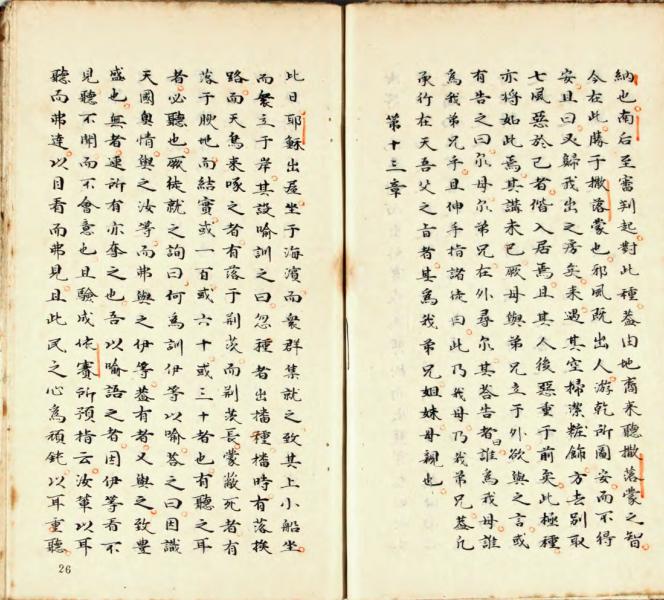 納也南后至審判起對此種葢由地裔來聽撒落蒙之智
今在此勝于撒落蒙也邪風既出人游乾所圖安而不得
安且曰又歸我出之房矣来遇其空掃潔粧飾方去別取
七風惡於己者偕入居焉且其人後惡重于前矣此極種
亦將如此焉其講未已厥母與弟兄立于外欲與之言或
有告之曰尔母尔弟兄在外尋尔其荅告者曰誰為我母誰
為我弟兄乎且伸手指諸徒曰此乃我母乃我弟兄葢凡
承行在天吾父之旨者其為我弟兄姐妹母親也
第十三章
此日耶穌出屋坐于海濱而衆群集就之致其上小船坐
而衆立于岸其設喻訓之曰忽種者出播種播時有落挨
路而天鳥来啄之者有落于荆茨而荆茨長蒙蔽死者有
落于腴地而結實或一百或六十或三十者也有聽之耳
者必聽也厥徒就之詢曰何為訓伊等以喻荅之曰因識
天國奧情與之汝等而弗與之伊等葢有者又與之致豊
盛也無者連所有亦奪之也吾以喻語之者因伊等看不
見聽不聞而不會意也且驗成依賽所預指云汝輩以耳
聽而弗達以目看而弗見且此民之心為頑鈍以耳重聽
26